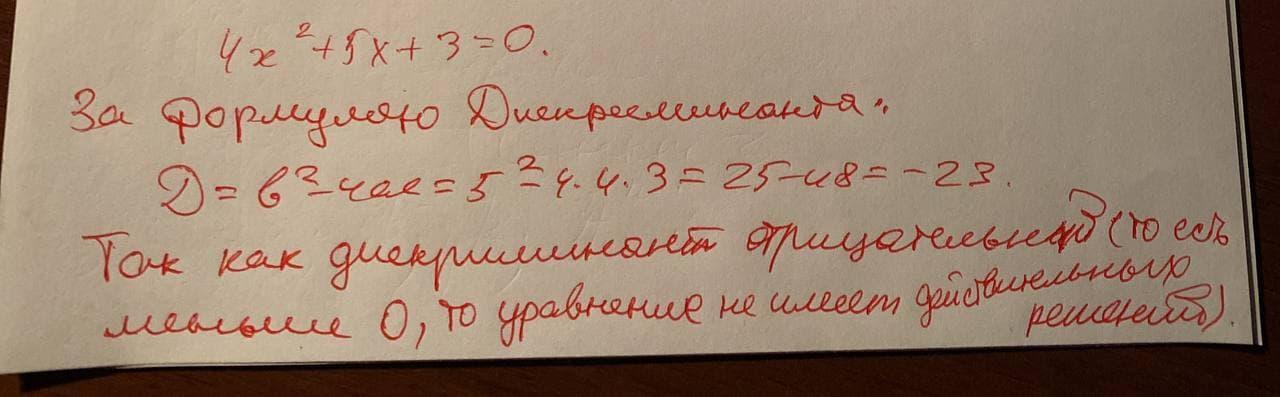 4x² + 5x + 3 = 0.
За формуляю Дискреминанта:
D = b² - 4ac = 5² - 4 · 4 · 3 = 25 - 48 = -23.
Так как дискриминант отрицательный (то есть
меньше 0, то уравнение не имеет действительных
решений).